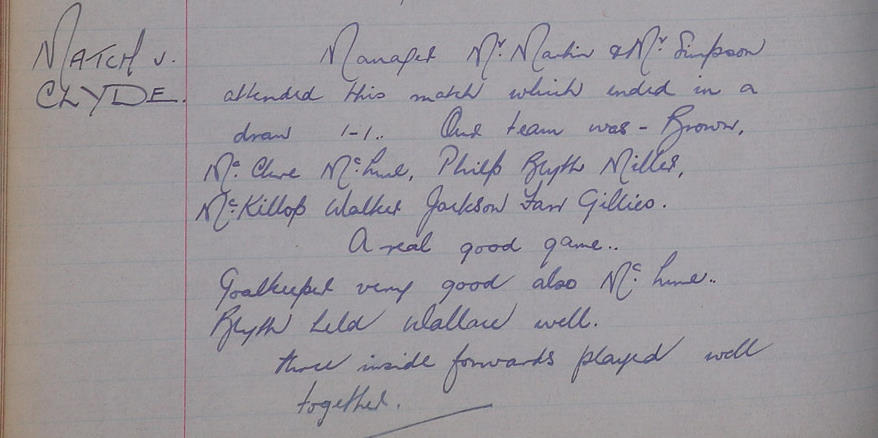 MATCH v.
CLYDE.
Manager Mr. Martin & Mr. Simpson
attended this match which ended in a
draw 1-1.. Our team was - Brown,
Mc. Clure Mc. Lure, Philip Blyth Miller,
Mc. Killop Walker Jackson Farr Gillies.
A real good game..
Goalkeeper very good also Mc. Lure..
Blyth held Wallace well.
three inside forwards played well
together.